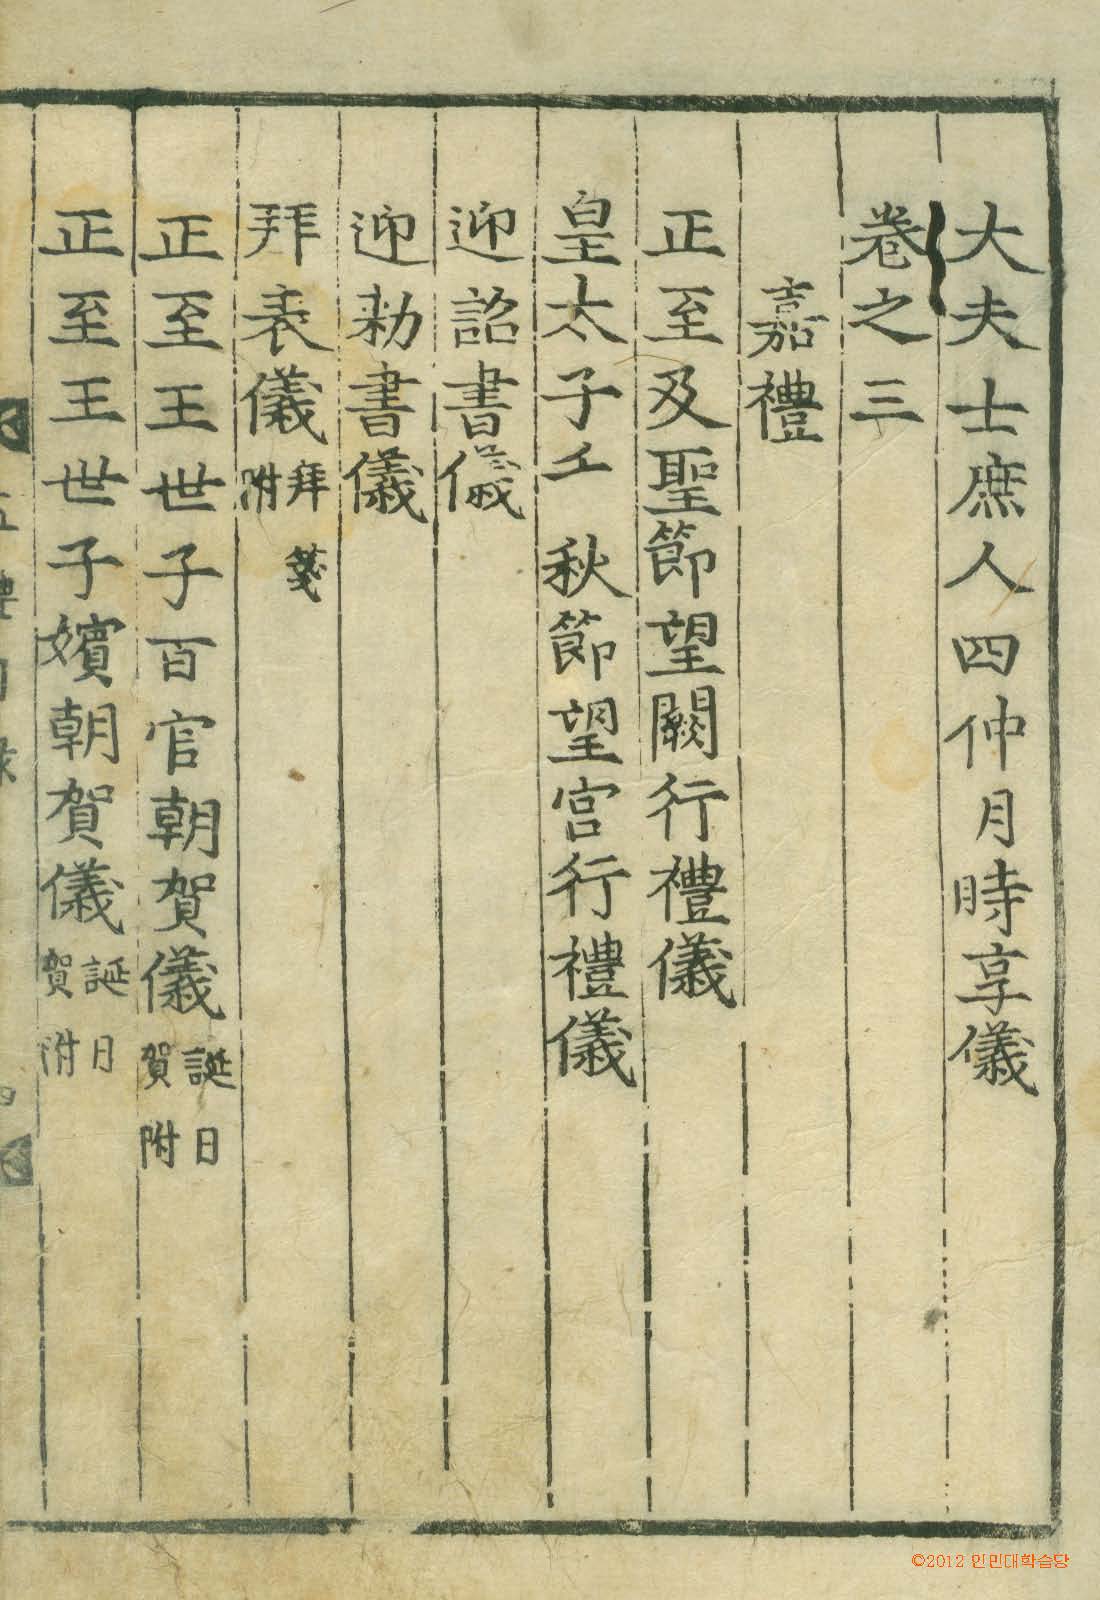 大夫士庶人四仲月時享儀
卷之三
嘉禮
正至及聖節望闕行禮儀
皇太子 秋節望宮行禮儀
迎詔書儀
迎勑書儀
拜表儀 拜箋附
正至王世子百官朝賀儀 誕日賀附
正至王世子嬪朝賀儀 誕日賀附
四
©2012 인민대학습당